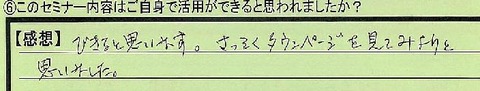 ⑥このセミナー内容はご自身で活用ができると思われましたか？
【感想】できると思います。さっそくタウンページを見てみようと
思いました。